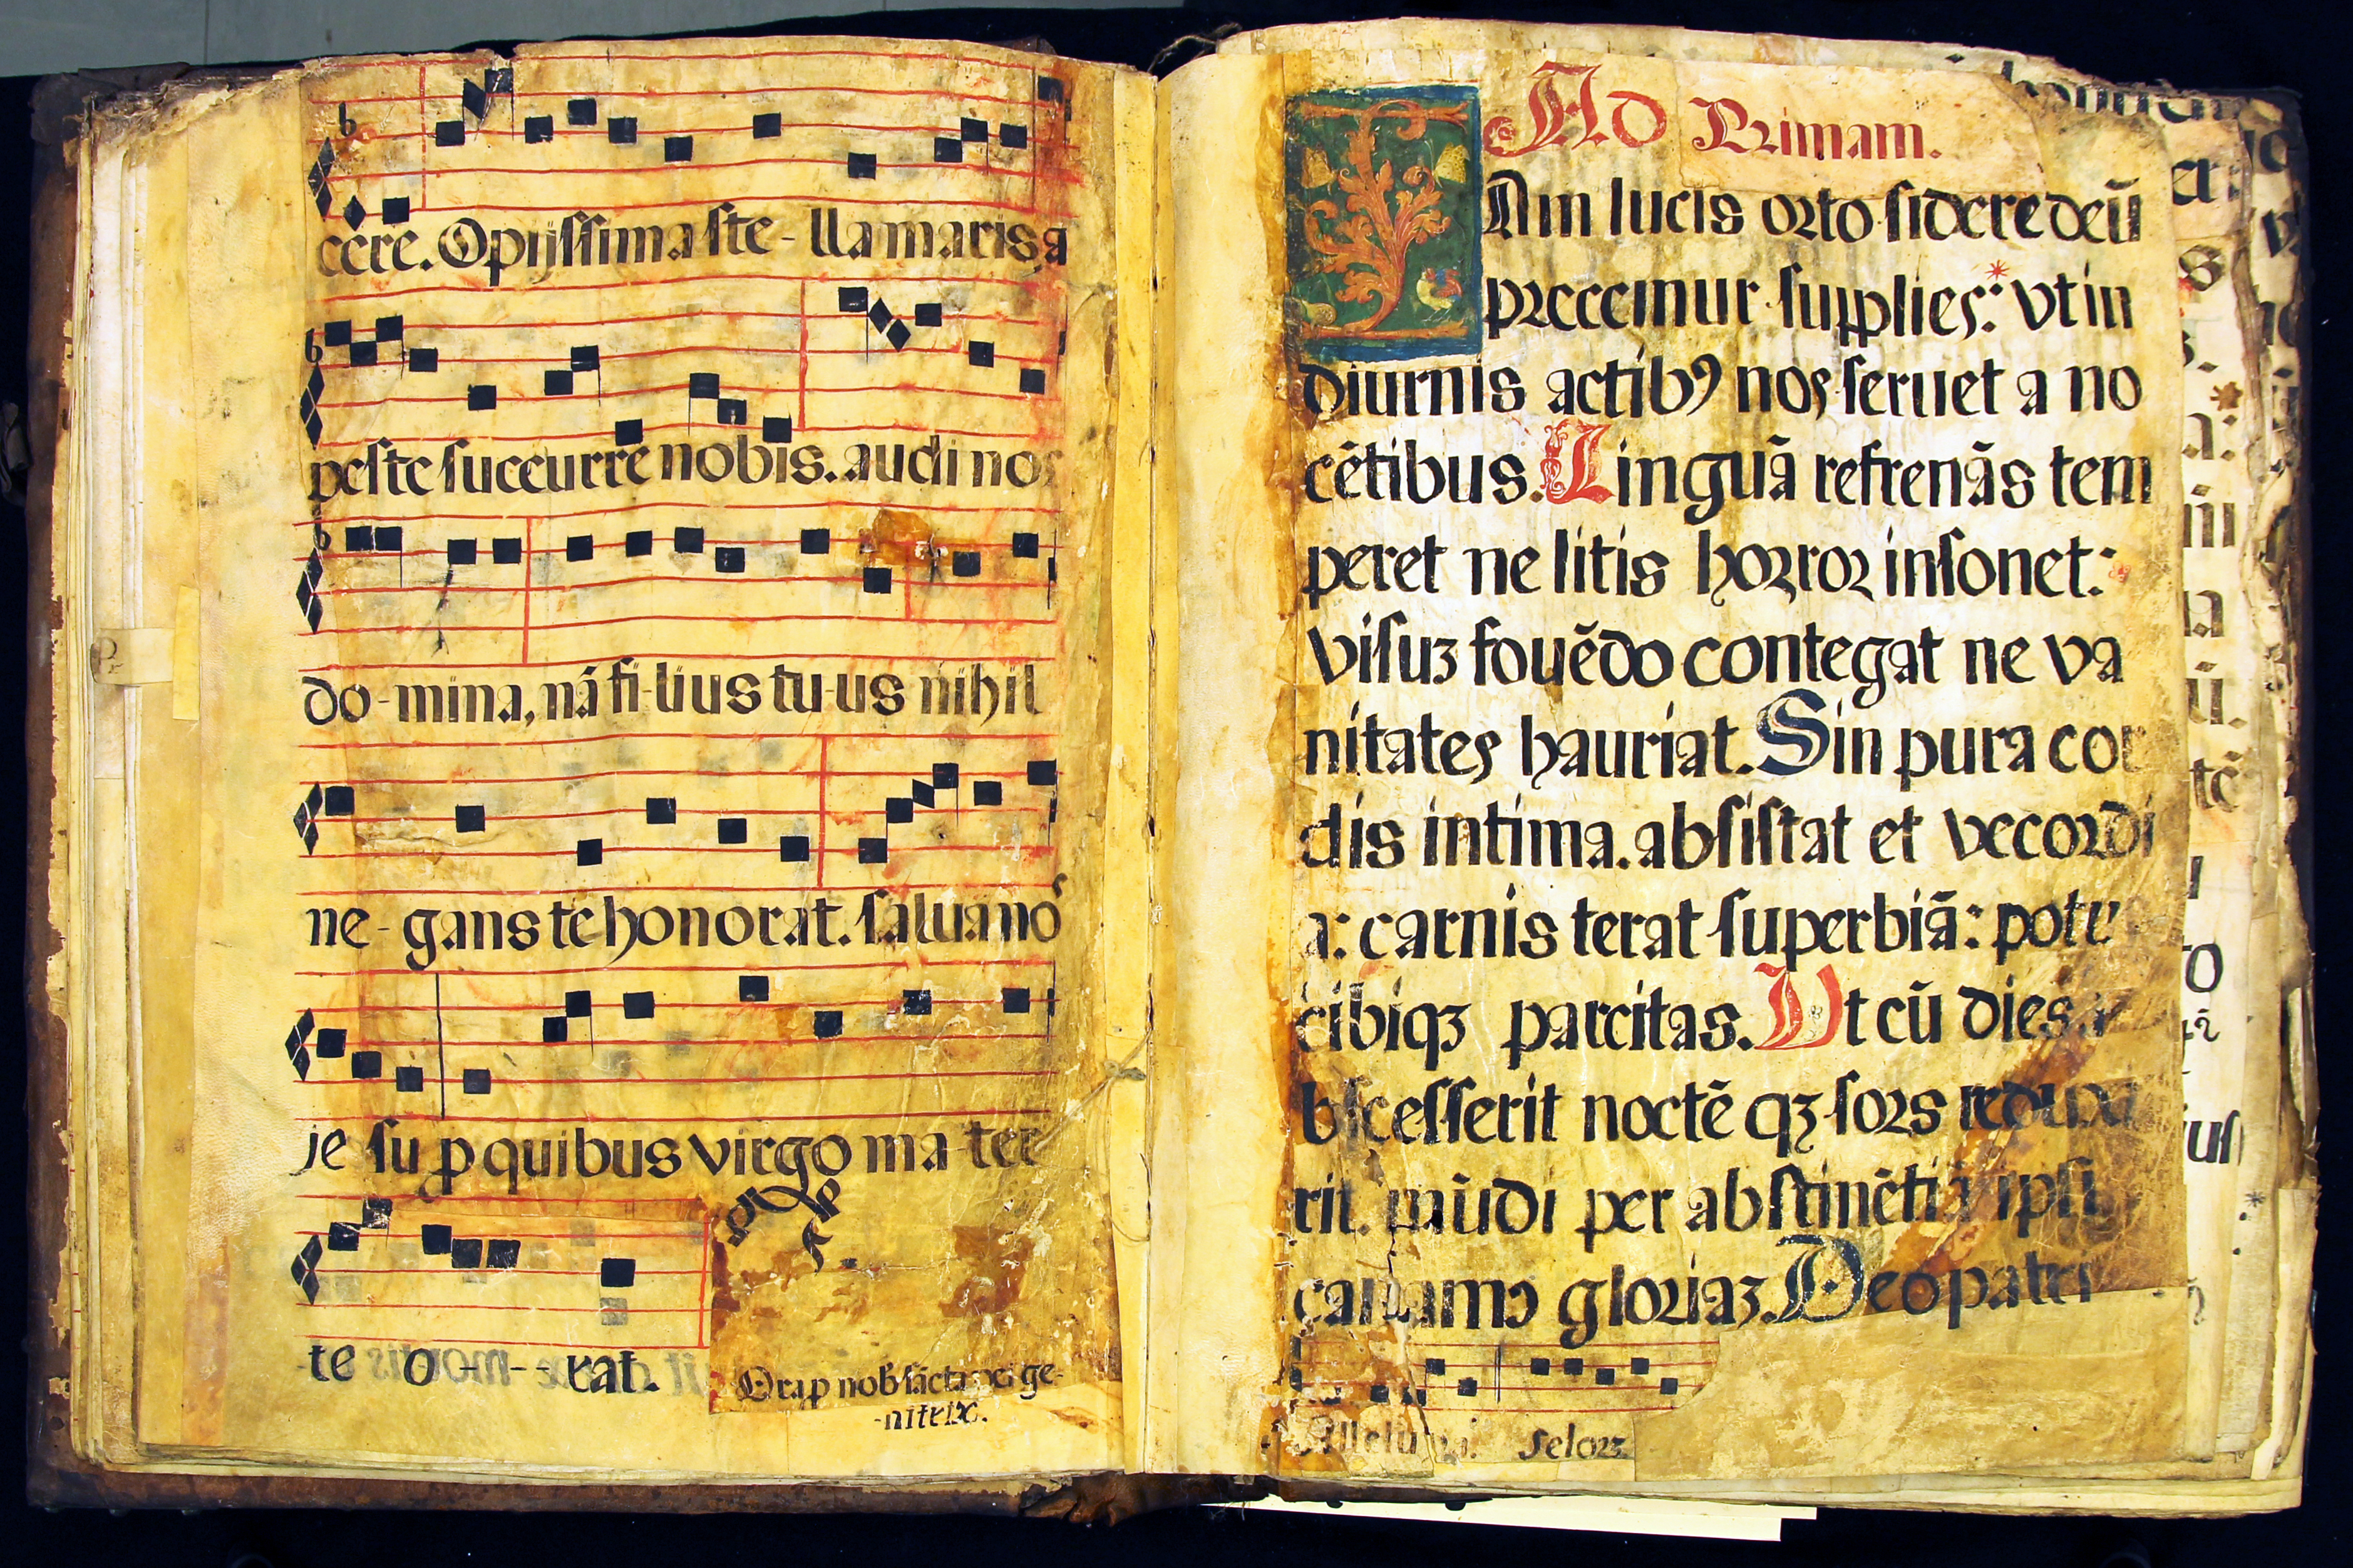 cere. Opijssima ste-lla maris, a
peste succurre nobis. audi nos
do-mina, nā fi-lius tu-us nihil
ne-gans te honorat. salua no
je su p quibus virgo ma-ter
te o--rat.
Ora p nob sācta dei ge-
-nitrix.
Ad Primam.
IAm lucis orto sidere deū
precemur supplices: vt in
diurnis actibꝯ nos seruet a no
cētibus. Linguā refrenās tem
peret ne litis horror insonet:
visuꝫ fouēdo contegat ne va
nitates hauriat. Sin pura cor
dis intima. absistat et vecordi
a: carnis terat superbiā: potu
cibiqꝫ parcitas. Vt cū dies a
bscesserit noctē qꝫ sors reduxe
rit. mūdi per abstinētiā ipsi
canamꝯ gloriaꝫ. Deo patri
Allelu ya. selorꝫ